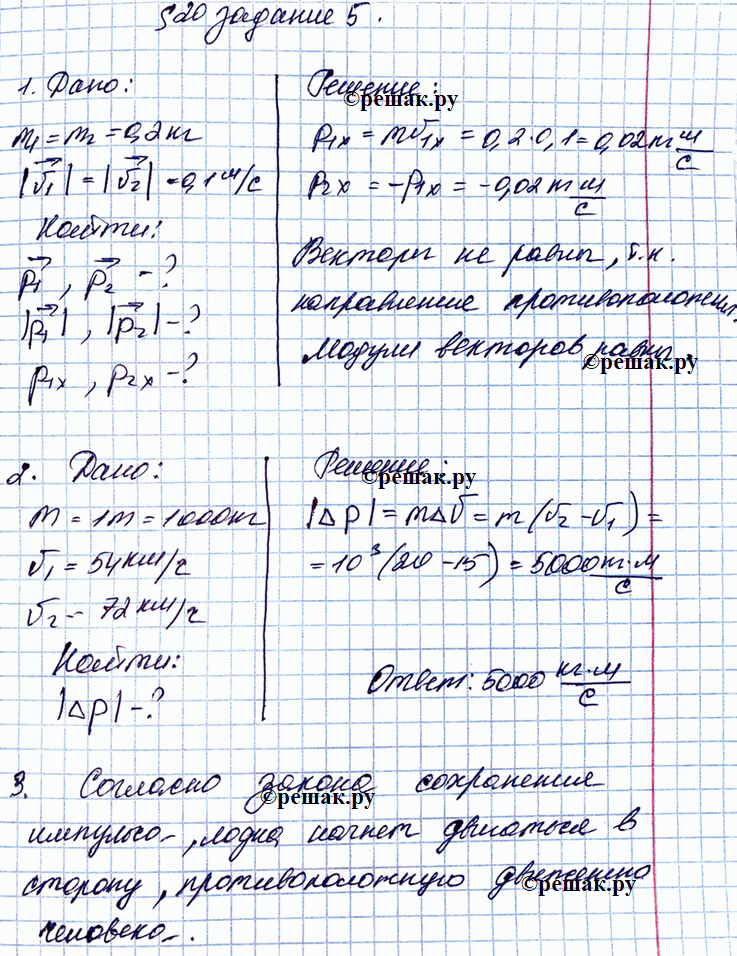 §20 задание 5.
1. Дано:
m₁ = m₂ = 0,2 кг
|v⃗₁| = |v⃗₂| = 0,1 м/с
Найти:
p⃗₁, p⃗₂ - ?
|p⃗₁|, |p⃗₂| - ?
p₁ₓ, p₂ₓ - ?
Решение:
©решак.ру
p₁ₓ = mv₁ₓ = 0,2·0,1 = 0,02 кг м/с
p₂ₓ = -p₁ₓ = -0,02 кг м/с
Векторы не равны, т.к.
направление противоположны.
Модули векторов равны.
©решак.ру
2. Дано:
m = 1т = 1000кг
v₁ = 54 км/ч
v₂ = 72 км/ч
Найти:
|Δp| - ?
Решение:
©решак.ру
|Δp| = mΔv = m(v₂ - v₁) =
= 10³(20 - 15) = 5000 кг·м/с
Ответ: 5000 кг·м/с
3. Согласно закона сохранения
©решак.ру
импульса, лодка начнет двигаться в
сторону, противоположную движению
©решак.ру
человека.